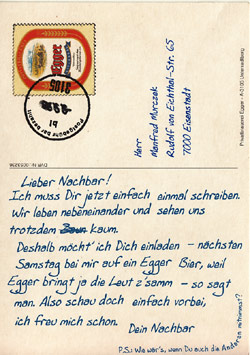 Egger
3105
Herr
Manfred Myrczek
Rudolf von Eichthal-Str. 65
7000 Eisenstadt
Privatbrauerei Egger · A-3105 Unterradlberg
Lieber Nachbar!
Ich muss Dir jetzt einfach einmal schreiben.
Wir leben nebeneinander und sehen uns
trotzdem kaum.
Deshalb möcht' ich Dich einladen - nächsten
Samstag bei mir auf ein Egger Bier, weil
Egger bringt ja die Leut z'samm - so sagt
man. Also schau doch einfach vorbei,
ich freu mich schon.
Dein Nachbar
P.S.: Wie wär's, wenn Du auch die Anderen mitnimmst?